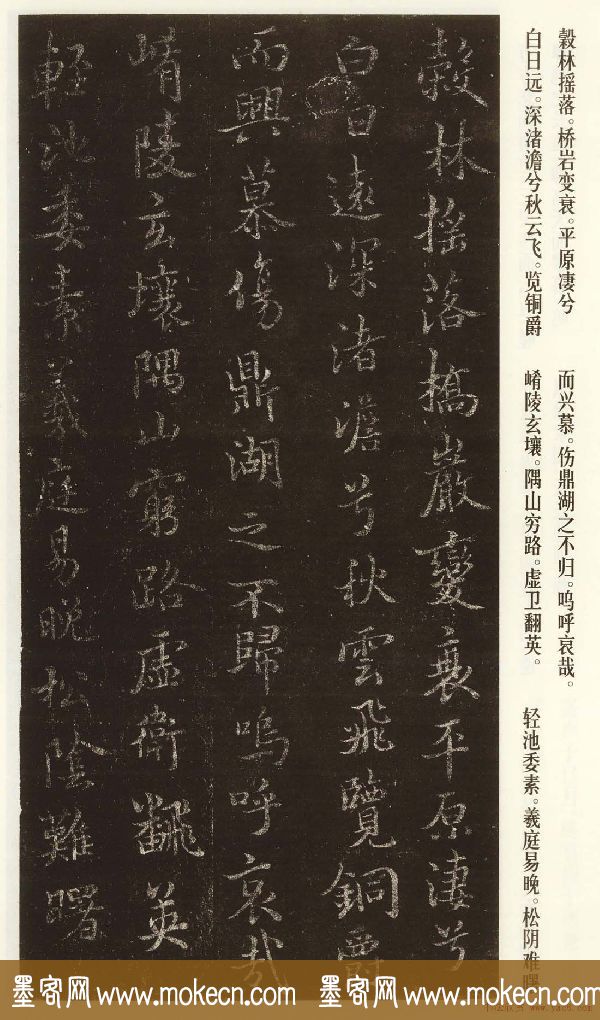 穀林摇落。桥岩变衰。平原凄兮
白日远。深渚澹兮秋云飞。览铜爵
而兴慕。伤鼎湖之不归。呜呼哀哉。
崤陵玄壤。隅山穷路。虚卫翻英。
轻池委素。羲庭易晚。松阴难曙
穀林揺落搞巖變衰平原淒兮
白日遠深渚澹兮秋雲飛覽銅爵
而興慕傷鼎湖之不歸嗚呼哀哉
崤陵玄壤隅山窮路虚衛飜英
輕池委素羲庭易晚松陰難曙
墨客网 www.mokecn.com 墨客网 www.mokecn.com